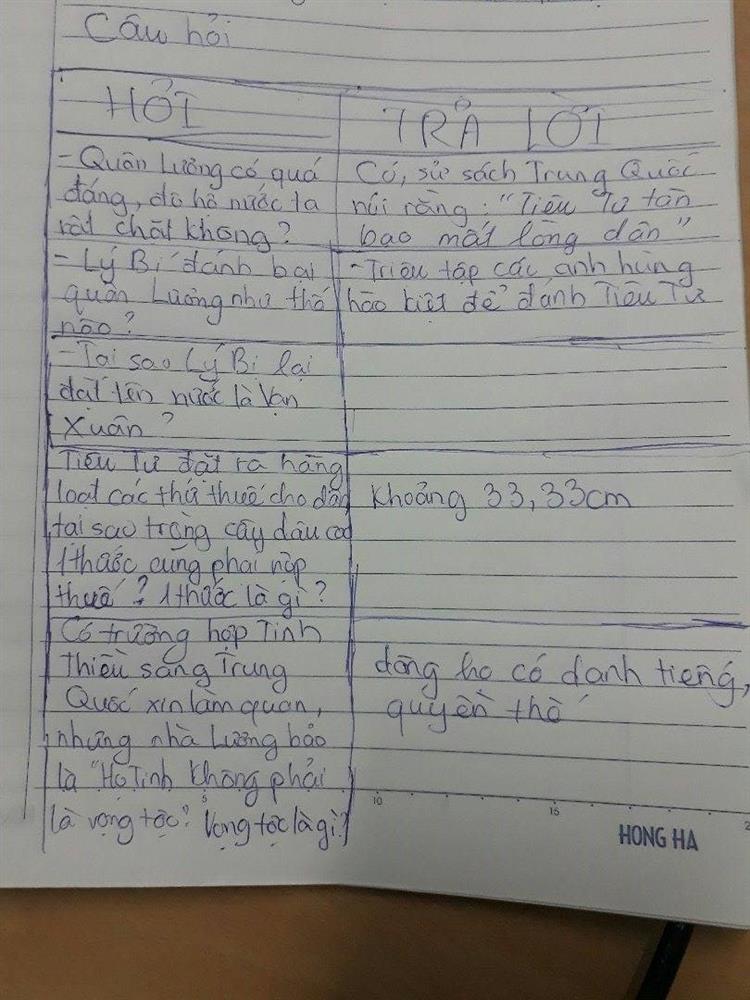 Câu hỏi
HỎI
TRẢ LỜI
- Quân Lương có quá
đáng, đô hộ nước ta
rất chặt không?
Có, sử sách Trung Quốc
nói rằng: "Tiêu Tư tàn
bạo mất lòng dân"
- Lý Bí đánh bại
quân Lương như thế
nào?
- Triệu tập các anh hùng
hào kiệt để đánh Tiêu Tư
- Tại sao Lý Bí lại
đặt tên nước là Vạn
Xuân?
Tiêu Tư đặt ra hàng
loạt các thứ thuế cho dân
tại sao trồng cây dâu cao
1 thước cũng phải nộp
thuế? 1 thước là gì?
Khoảng 33,33cm
Có trường hợp Tinh
Thiều sang Trung
Quốc xin làm quan,
nhưng nhà Lương bảo
là "Họ Tinh không phải
là vọng tộc". Vọng tộc là gì?
dòng họ có danh tiếng,
quyền thế
5 10 15 2
HONG HA